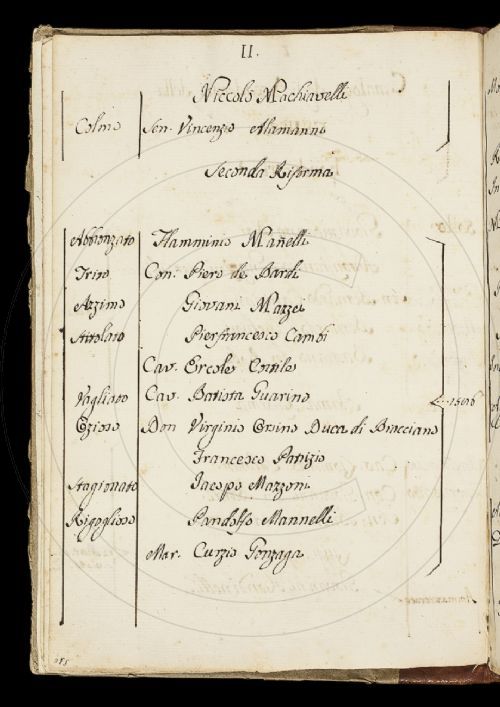 II.
Niccolò Machiavelli
Colmo Sen. Vincenzio Alamanni
Seconda Riforma
Abbronzato Flamminio Mañelli
Trito Con. Piero de Bardi
Azzimo Giovani Mazzei
Pierfrancesco Cambi
Cav. Ercole Cortile
Vagliato Cav. Batista Guarino
Ozioso Don Virginio Orsino Duca di Bracciano
Francesco Patrizio
Stagionato Jacopo Mazzoni
Rigoglioso Pandolfo Mannelli
Mar. Curzio Gonzaga